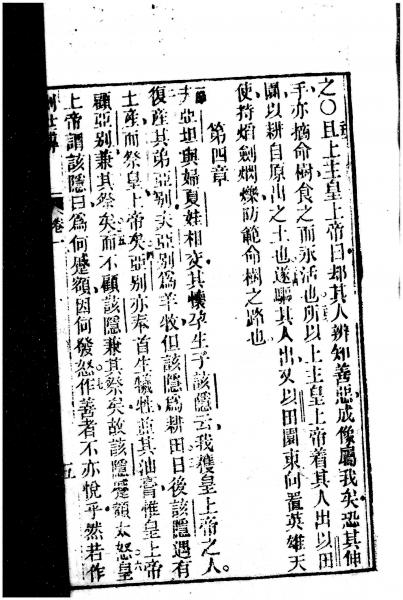 之〇且上主皇上帝曰却其人辨知善惡成像屬我矣恐其伸
手亦摘命樹食之而永活也所以上主皇上帝着其人出以田
園以耕自原出之土也遂驅其人出又以田園東向置英雄天
使持焰劍爓爍防範命樹之路也
第四章
夫亞坦與婦夏娃相交其懷孕生子該隱云我獲皇上帝之人
復產其弟亞別夫亞別爲羊牧但該隱爲耕田日後該隱遇有
土產而祭皇上帝矣亞別亦奉首生犧牲並其油膏惟皇上帝
顧亞別兼其祭矣而不顧該隱兼其祭矣故該隱蹙額太怒皇
上帝謂該隱曰爲何蹙額因何發怒作善者不亦悅乎然若作
卷一 五